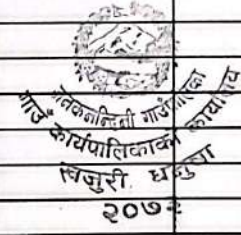 जनकनन्दिनी गाउँपालिका
गाउँ कार्यपालिकाको कार्यालय
खजुरी, धनुषा